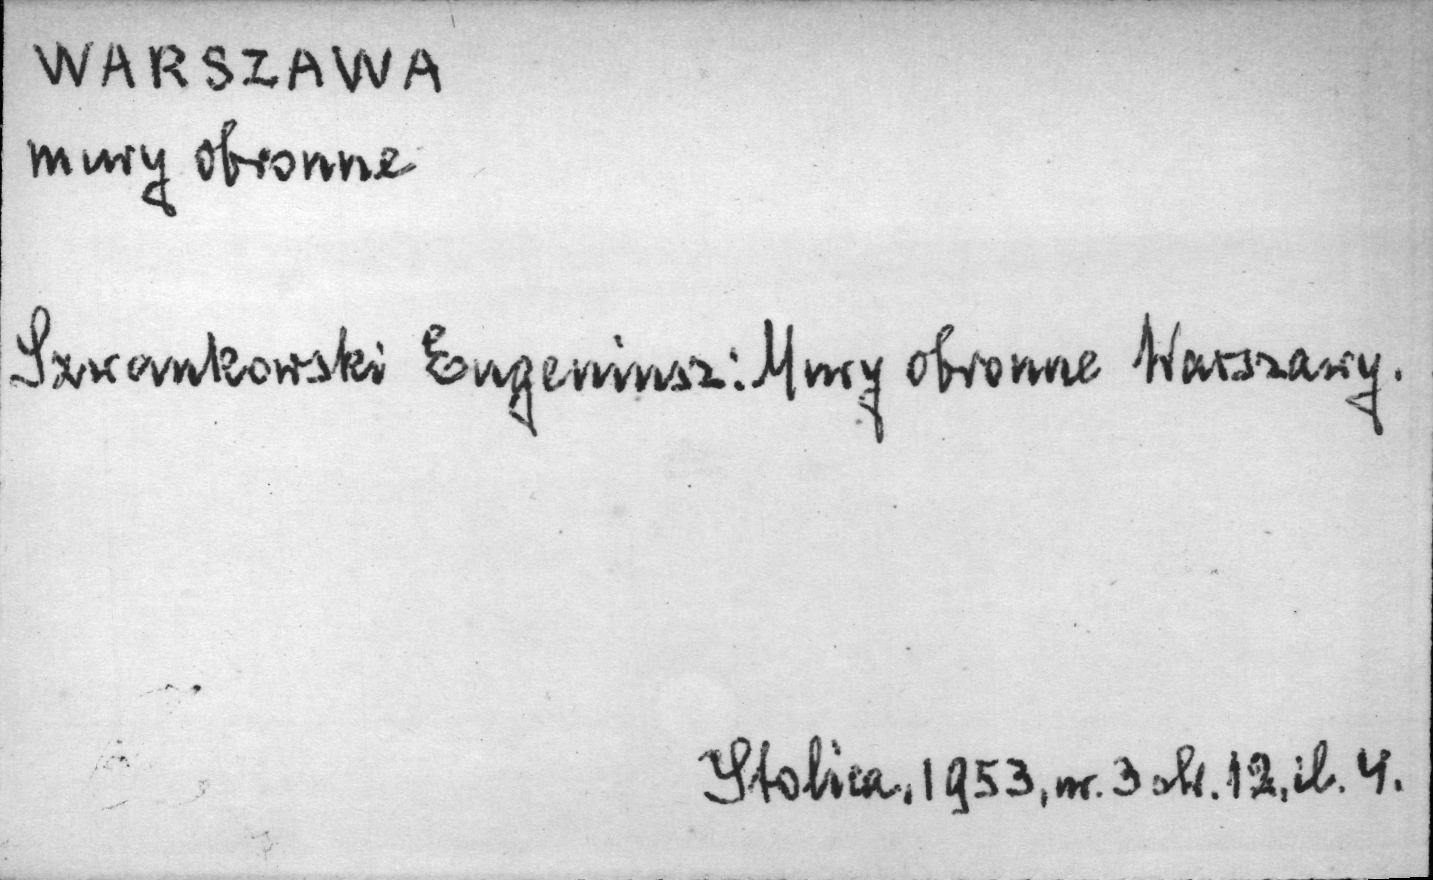 WARSZAWA
mury obronne
Szwankowski Eugeniusz: Mury obronne Warszawy.
Stolica, 1953, nr. 3 str. 12, il. 4.